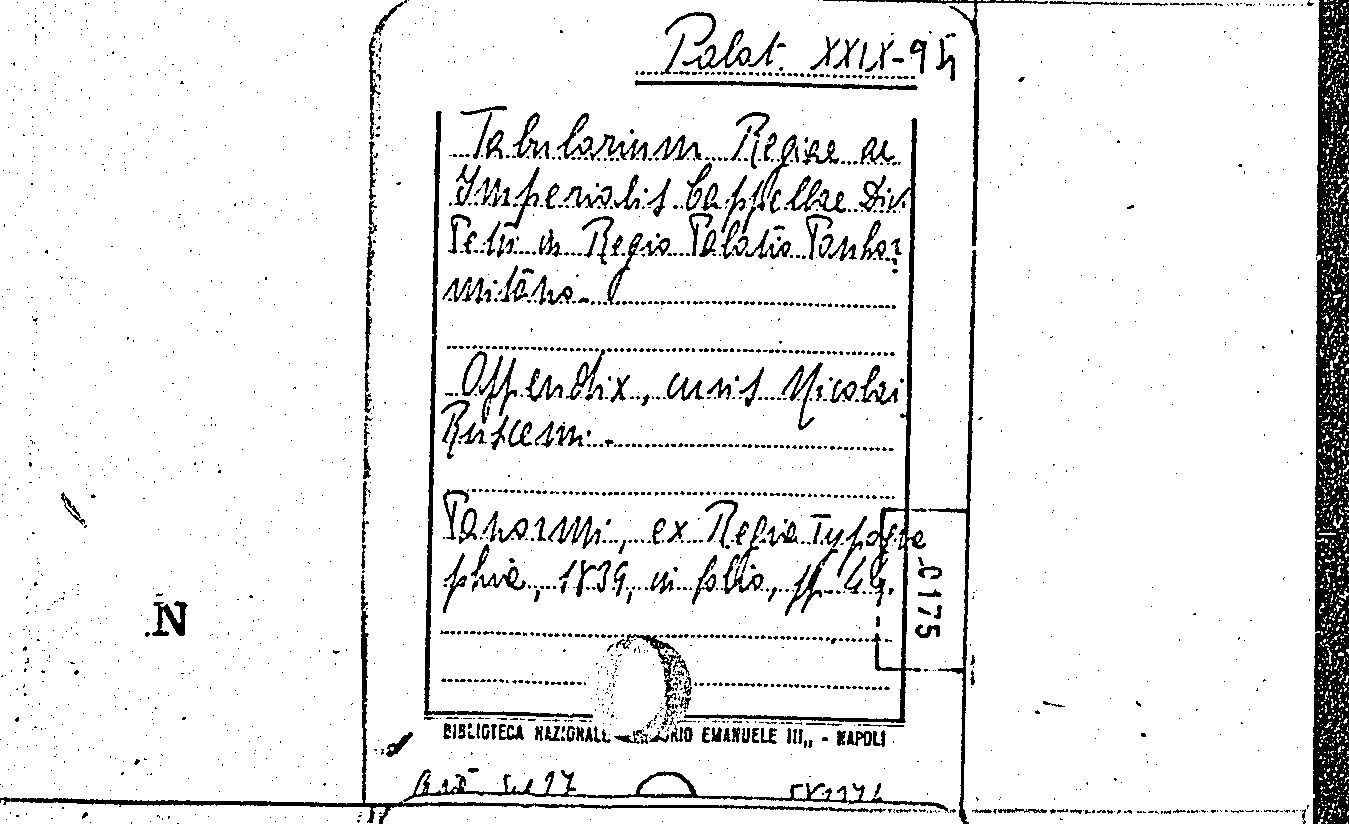 Palat. XXIX-95
Tabularium Regiae ac
Imperialis Cappellae Div.
Petri in Regio Palatio Panhor
mitano.
Appendix, curis Nicolai
Buscemi.
Panormi, ex Regia Typogra
phia, 1839, in folio, pp. 44.
0175
N
BIBLIOTECA NAZIONALE EMANUELE III„ - NAPOLI